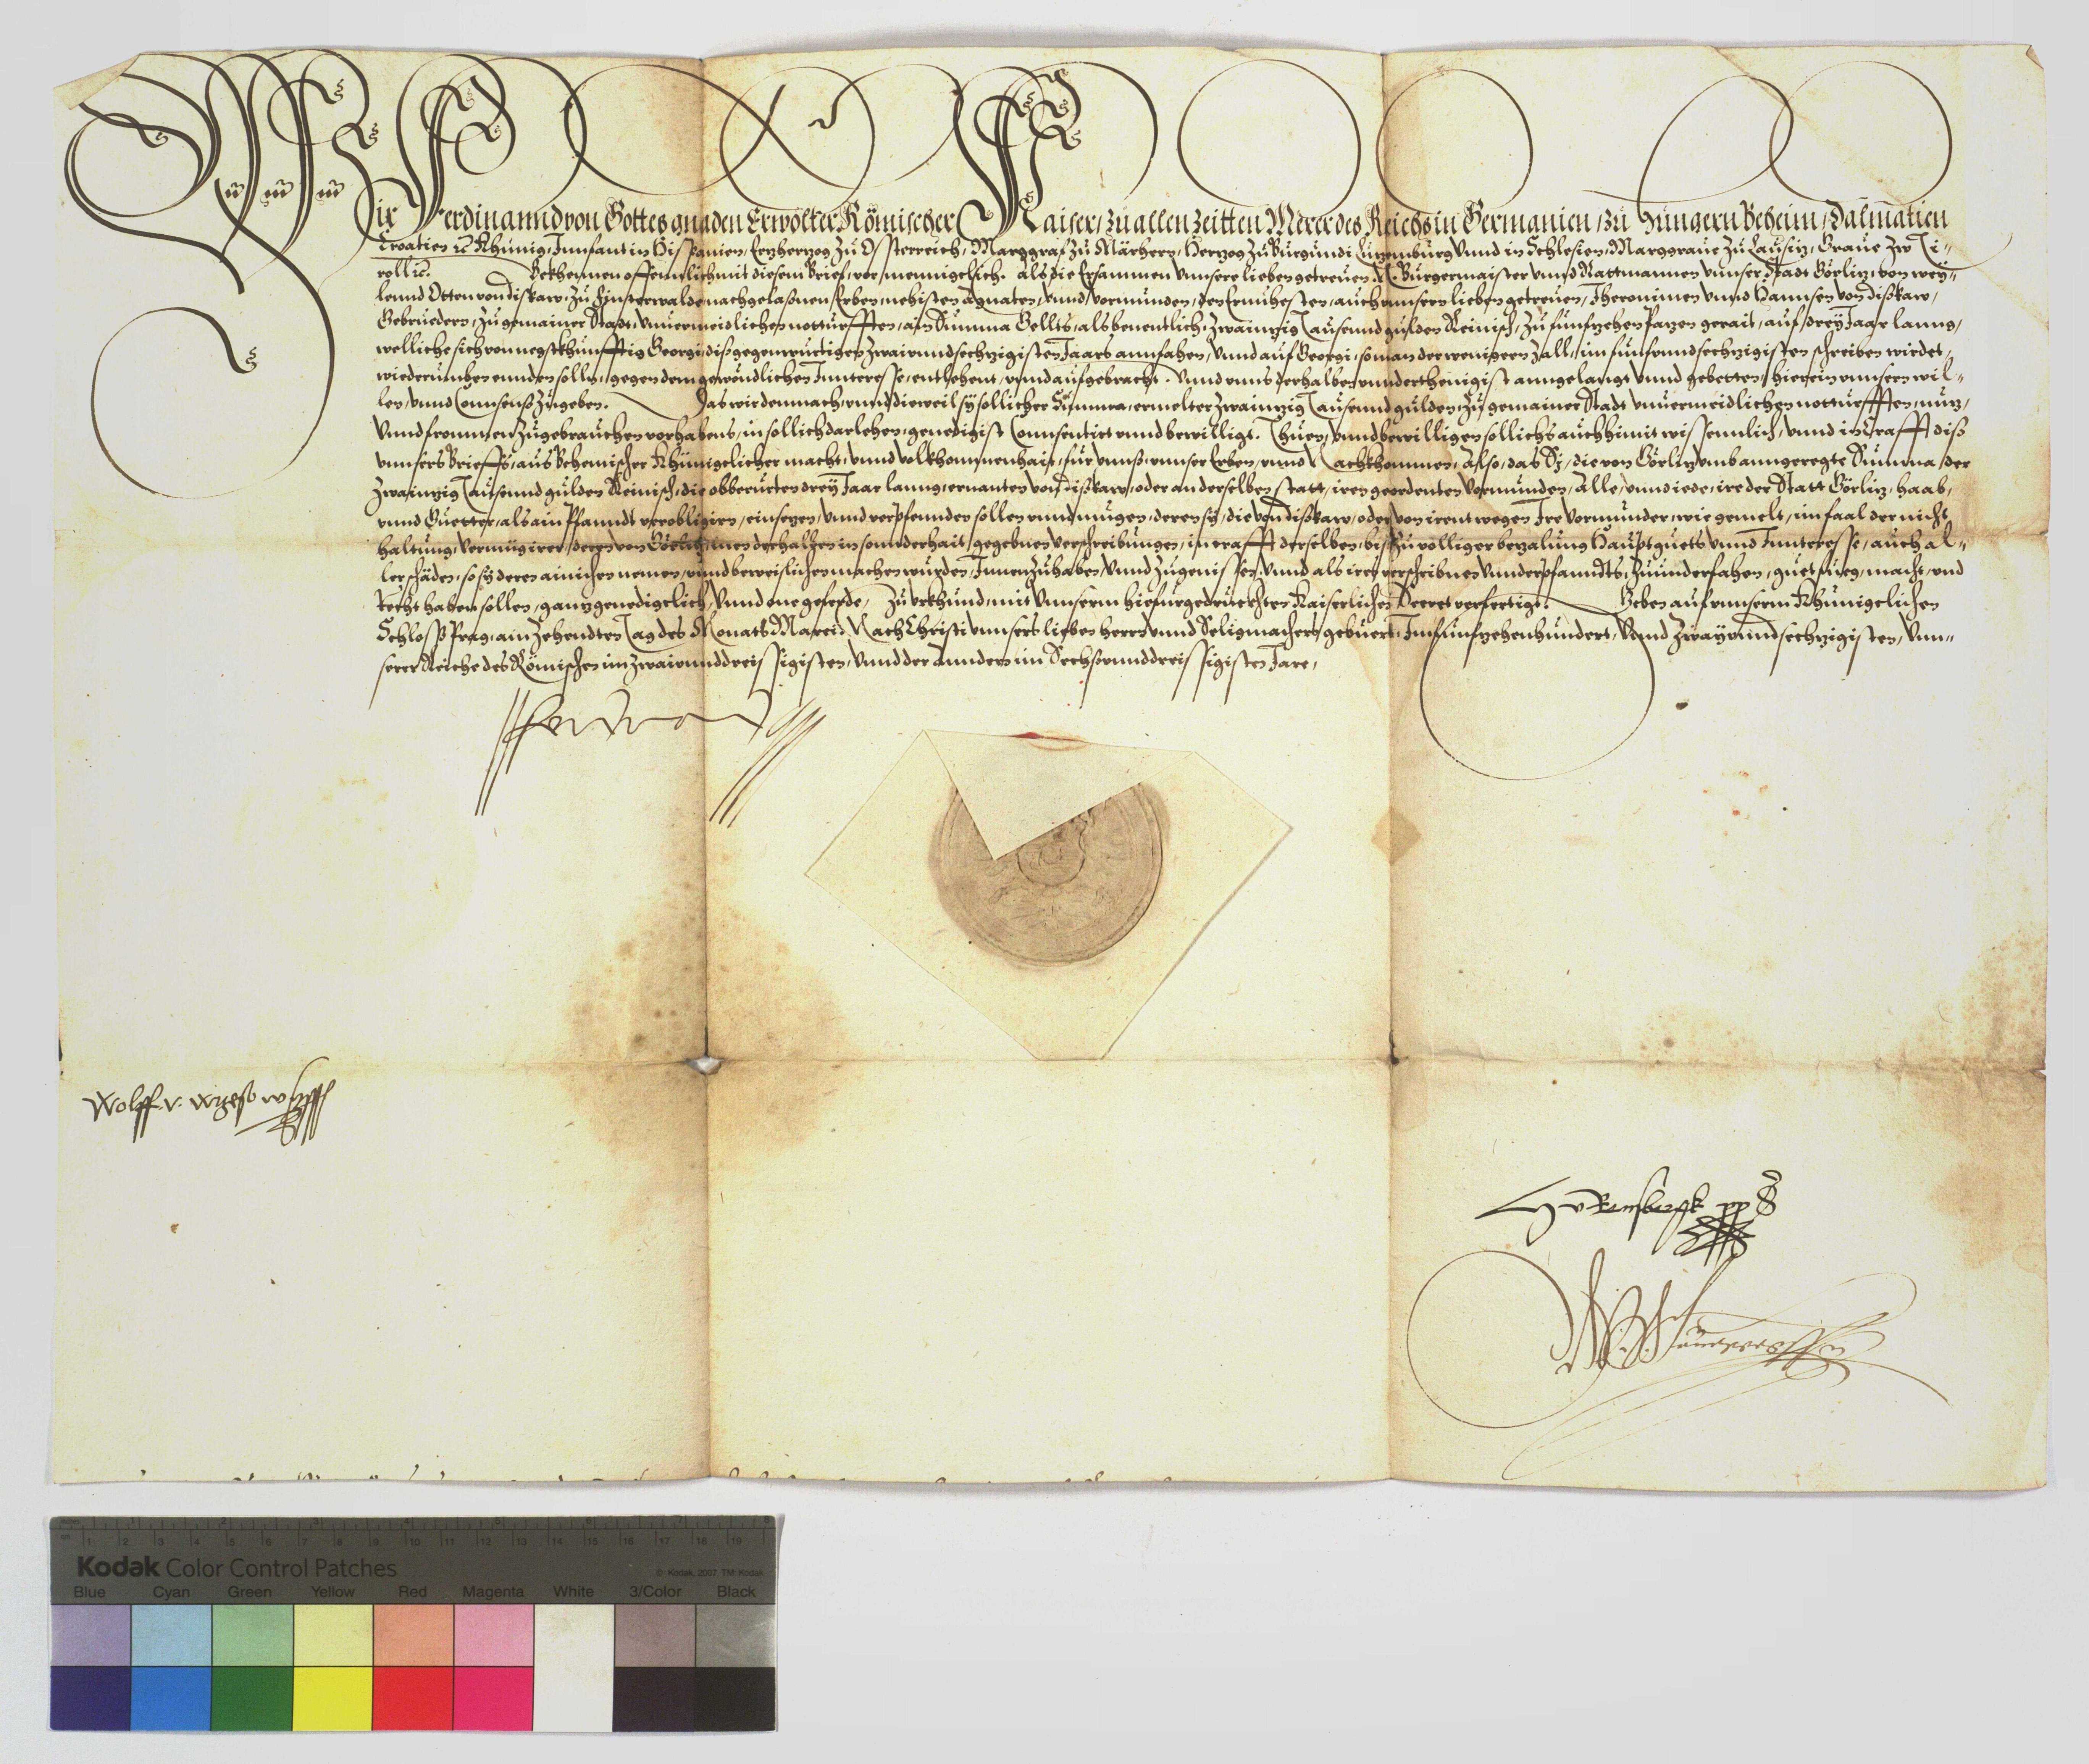 Wir Ferdinannd von Gottes gnaden Erwölter Römischer Kaiser, zu allen zeitten Merer des Reichs in Germanien, zu Hungern Beheim, Dalmatien
Croatien ꝛc. Khünig, Innfant in Hispanien, Ertzhertzog zu Osterreich, Marggraf zu Märhern, Hertzog zu Burgundi Lutzemburg unnd in Schlesien, Marggraue zu Lausitz, Graue zw Ti-
roll ꝛc. Bekhennen offennlich mit diesem Brief, vor mennigelich. Als die Ersammen vnnsere lieben getreuen. N. Burgermaister vnnd Rattmannen vnnser Stadt Görlitz, von wey-
lennd Otten von Diskaw, zu Finsterwalde nachgelaßnen Erben, nehisten Agnaten, vnnd, vormunden, den Ernuhesten, auch vnnsern lieben getreuen, Jheronimen vnnd Hannsen von Dißkaw,
Gebruedern, zu gemainer Stadt, vnuermeidlichen notturfften, ain Summa Gellts, als benentlich, zwaintzig Tausennd gulden Reinisch, zu funfzehen Patzen gerait, auf drey Jaar lanng,
welliche sich von negstkhunfftig Georgi, diß gegenwurtigen zwaivnndsechzigisten Jaars annfahen, vnnd auf Georgi, so man der wenigern zall, im funfvnndsechzigisten schreiben wirdet,
wiederumben ennden solln, gegen dem gewöndlichen Innteresse, entlehent, vnnd aufgebracht. Vnnd vnns derhalben vnnderthenigist anngelangt vnnd gebetten, hierein vnnsern wil-
len, vnnd Connsenß zugeben. Das wir demnach, vnnd dieweil sy sollicher Summa, ermelter zwaintzig Tausennd gulden, zu gemainer Stadt vnuermeidlichen notturfften, nutz,
vnnd frommen zugebrauchen vorhabens, in sollich darlehen, genedigist Connsentirt vnnd bewilligt. Thuen, vnnd bewilligen sollichs auch himit wissennlich, vnnd in Crafft diß
vnnsers Brieffs, aus Behemischer Khünigelicher macht, vnnd volkhommenhait, für vnnß, vnnser Erben, vnnd Nachkhommen, Also, das Sy, die von Görlitz vmb anngeregte Summa, der
zwaintzig Tausennd gulden Reinisch, die obberurten drey Jaar lanng, ernanten von Dißkaw, oder an derselben statt, iren geordenten Vormunden, Alle, vnnd iede, ire der Statt Görlitz, haab,
vnnd Guetter, als ain Pfanndt verobligirn, einsetzen, vnnd verpfennden sollen vnnd mugen, deren sy, die von Dißkaw, oder von irent wegen Ire Vormunder, wie gemelt, im faal der nicht
haltung, vermüg irer, deren von Görlitz, inen derhalben in sonnderhait, gegebnen verschreibungen, in crafft derselben, biß zu volliger bezalung Hauptguets vnnd Innteresse, auch al-
ler schäden, so sy deren ainichen nemen, vnnd beweislichen machen wurden, Innenzuhaben, vnnd zugeniessen, vnnd als iren verschribnen vnnderpfanndts, zuunderfahen, guet fueg, macht, vnd
Recht haben sollen, gantz genedigclich, vnnd one geferde, Zu vrkhund, mit vnnserm hiefurgedruckhten Kaiserlichen Secret verfertigt. Geben auf vnnserm Khünigelichen
Schloß Prag, am zehendten Tag des Monats Marci, Nach Christi vnnsers lieben herrn vnnd Seligmachers gebuert, Im funfzehenhundert, vnnd zwayvnndsechzigisten, Vnn-
serer Reiche des Römischen im zwaivnnddreissigisten, vnnd der Anndern im Sechßvnnddreissigisten Jare,
Ferdinand
Wolff. v. wrzesowitz
Kodak Color Control Patches
© Kodak, 2007 TM: Kodak
Blue Cyan Green Yellow Red Magenta White 3/Color Black